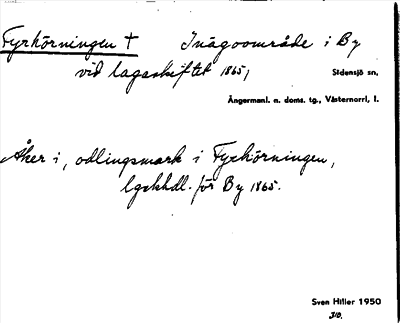 Fyrhörningen † Inägoområde i By
vid lagaskiftet 1865,
Sidensjö sn,
Ångermanl. n. doms. tg., Västernorrl. l.
Åker i, odlingsmark i Fyrhörningen,
lgskhdl. för By 1865.
Sven Hiller 1950
310.